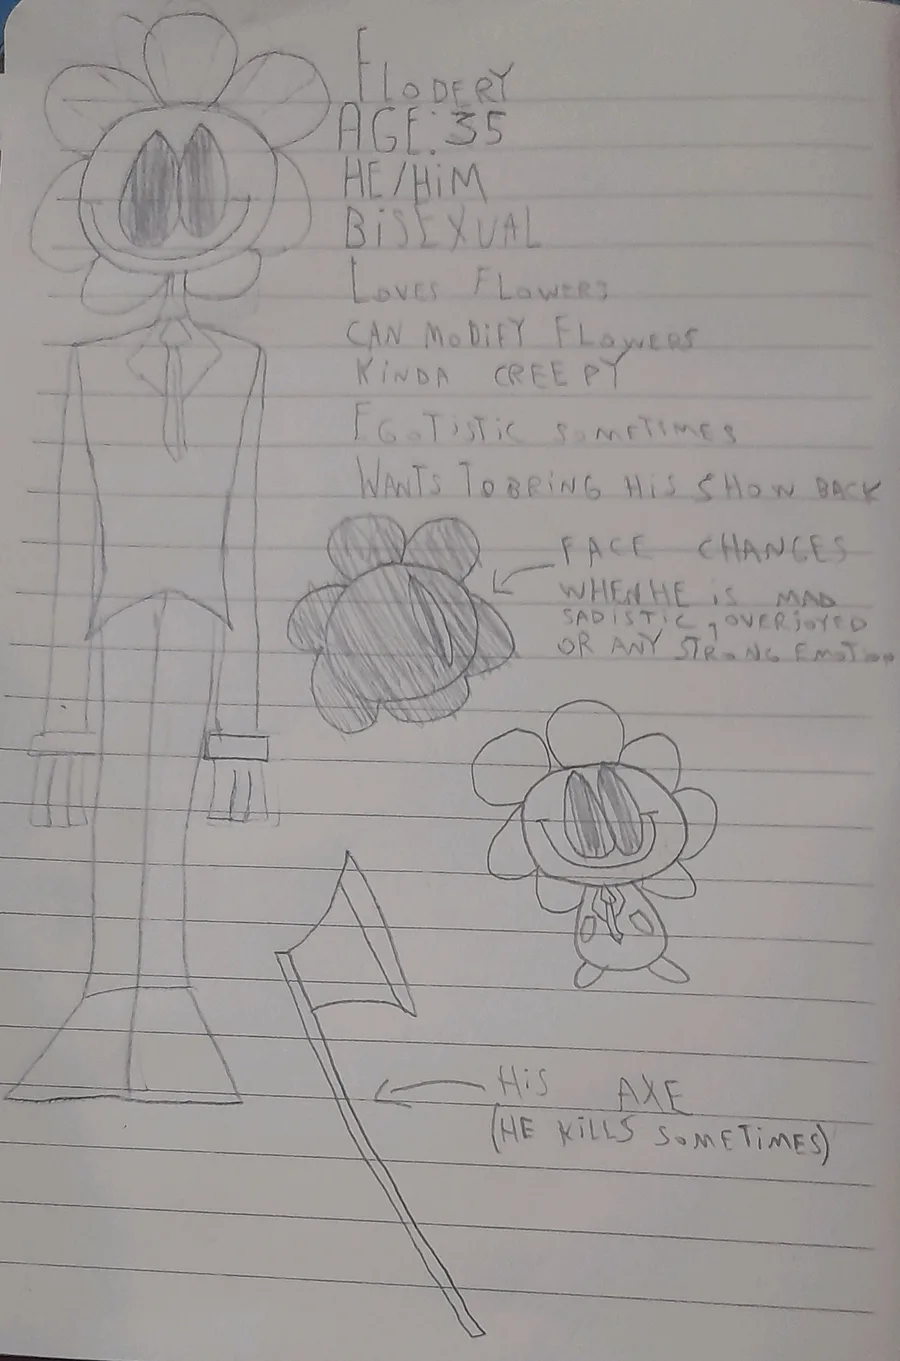 FLODERY
AGE: 35
HE/HiM
BiSEXUAL
LOVES FLOWERS
CAN MODiFY FLOWERS
KiNDA CREEPY
EGOTiSTiC SOMETiMES
WANTS TO BRiNG HiS SHOW BACK
FACE CHANGES
WHEN HE iS MAD
SADiSTiC, OVERJOYED
OR ANY STRONG EMOTiON
HiS AXE
(HE KiLLS SOMETiMES)